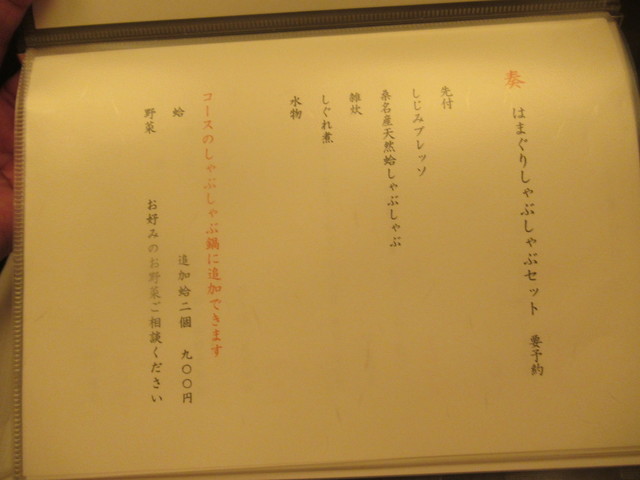 奏 はまぐりしゃぶしゃぶセット 要予約
先付
しじみブレッソ
桑名産天然蛤しゃぶしゃぶ
雑炊
しぐれ煮
水物
コースのしゃぶしゃぶ鍋に追加できます
蛤 追加蛤二個 九〇〇円
野菜 お好みのお野菜ご相談ください